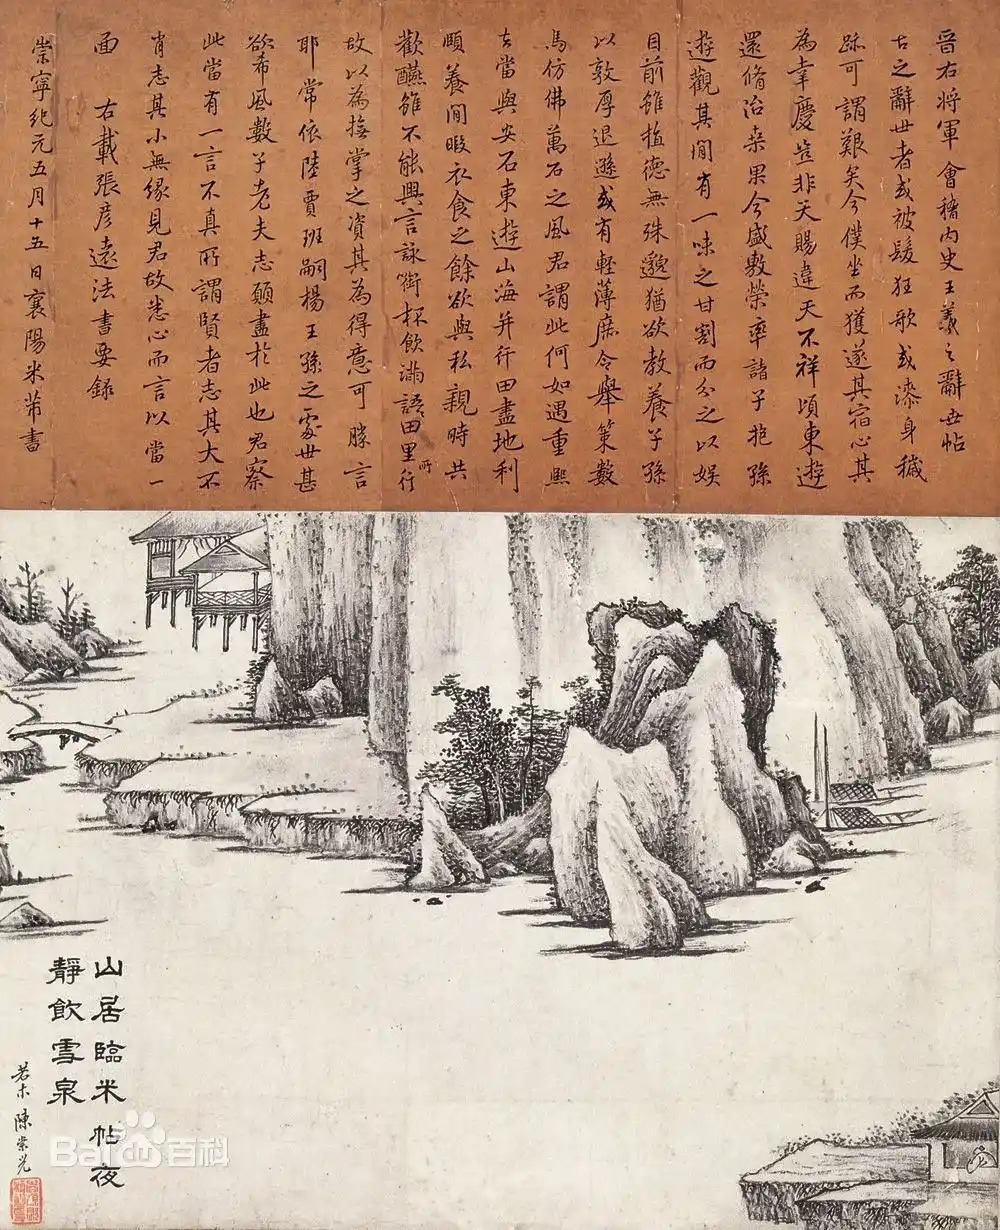 晉右將軍會稽內史王羲之辭世帖
古之辭世者或被髮狂歌或漆身穢
跡可謂艱矣今僕坐而獲遂其宿心其
為幸慶豈非天賜違天不祥頃東遊
還脩治桑果今盛敷榮率諸子抱孫
遊觀其間有一味之甘割而分之以娛
目前雖植德無殊邈猶欲教養子孫
以敦厚退遜或有輕薄庶令舉策數
馬仿佛萬石之風君謂此何如遇重熙
去當與安石東遊山海并行田盡地利
頤養閒暇衣食之餘欲與私親時共
歡醼雖不能興言詠銜杯飲滿語田里所行
故以為撫掌之資其為得意可勝言
耶常依陸賈班嗣楊王孫之處世甚
欲希風數子老夫志願盡於此也君察
此當有一言不真所謂賢者志其大不
肖志其小無緣見君故悉心而言以當一
面 右載張彥遠法書要錄
崇寧紀元五月十五日襄陽米芾書
山居臨米帖夜
靜飲雪泉
若木陳崇光
Bai百科